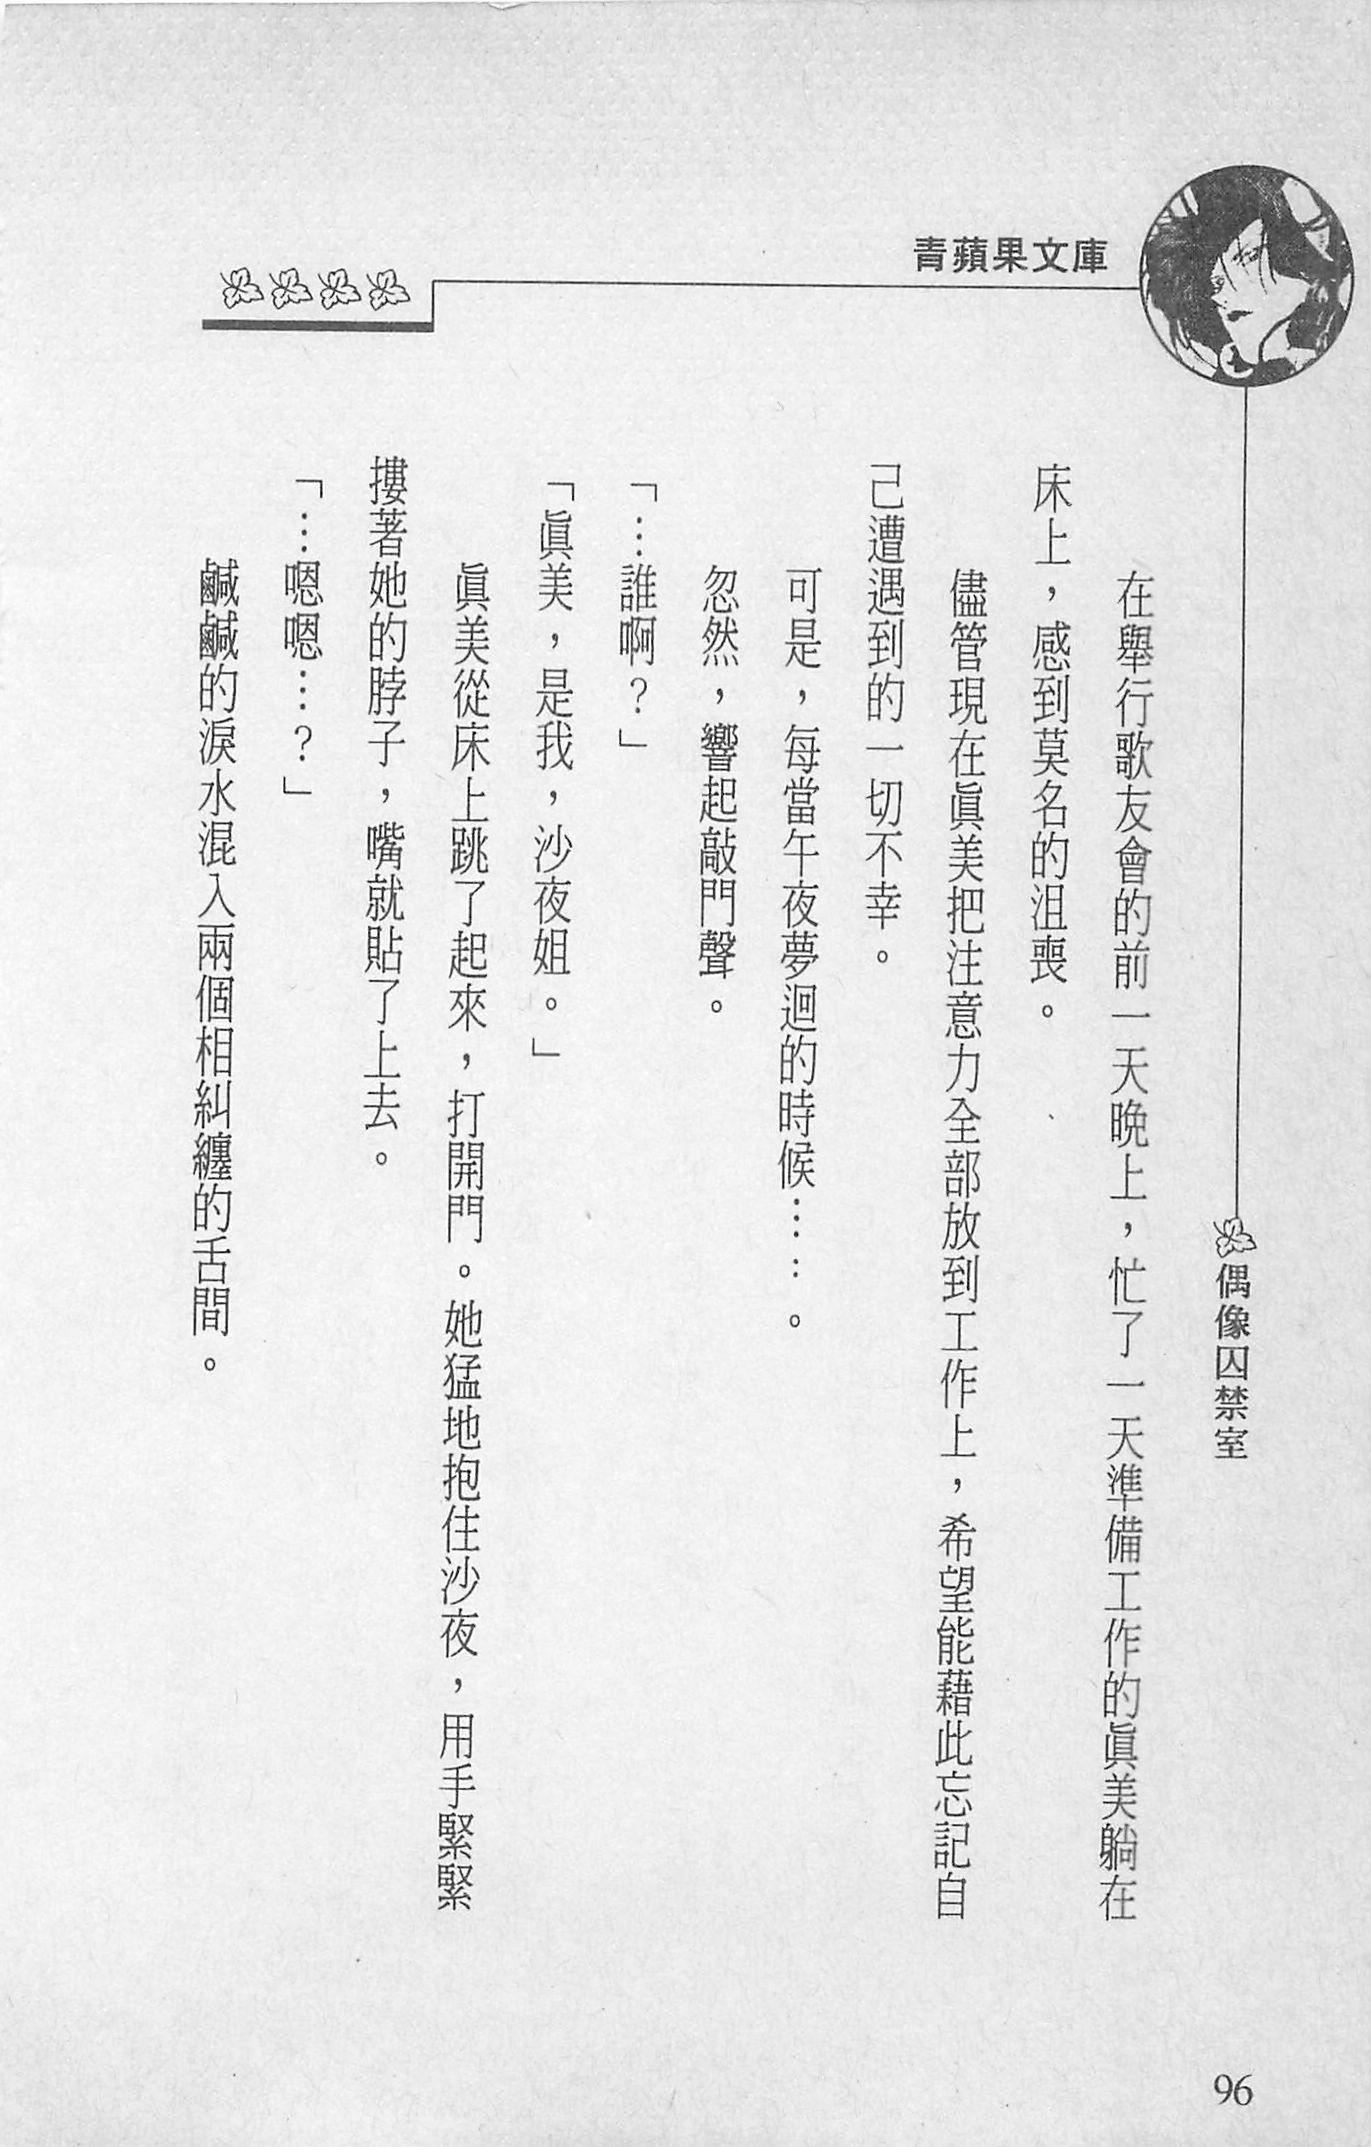 青蘋果文庫
偶像囚禁室
在舉行歌友會的前一天晚上，忙了一天準備工作的眞美躺在
床上，感到莫名的沮喪。
儘管現在眞美把注意力全部放到工作上，希望能藉此忘記自
己遭遇到的一切不幸。
可是，每當午夜夢迴的時候⋯⋯。
忽然，響起敲門聲。
「⋯誰啊？」
「眞美，是我，沙夜姐。」
眞美從床上跳了起來，打開門。她猛地抱住沙夜，用手緊緊
摟著她的脖子，嘴就貼了上去。
「⋯嗯嗯⋯？」
鹹鹹的淚水混入兩個相糾纏的舌間。
96